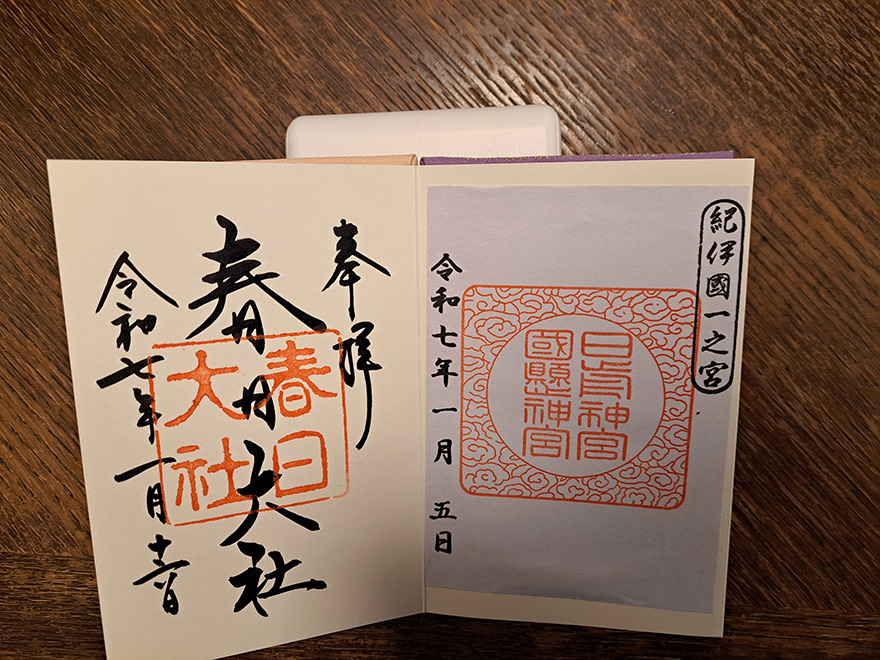 紀伊國一之宮
日前神宮
國懸神宮
令和七年一月 五日
奉拝
春日大社
春日
大社
令和七年一月